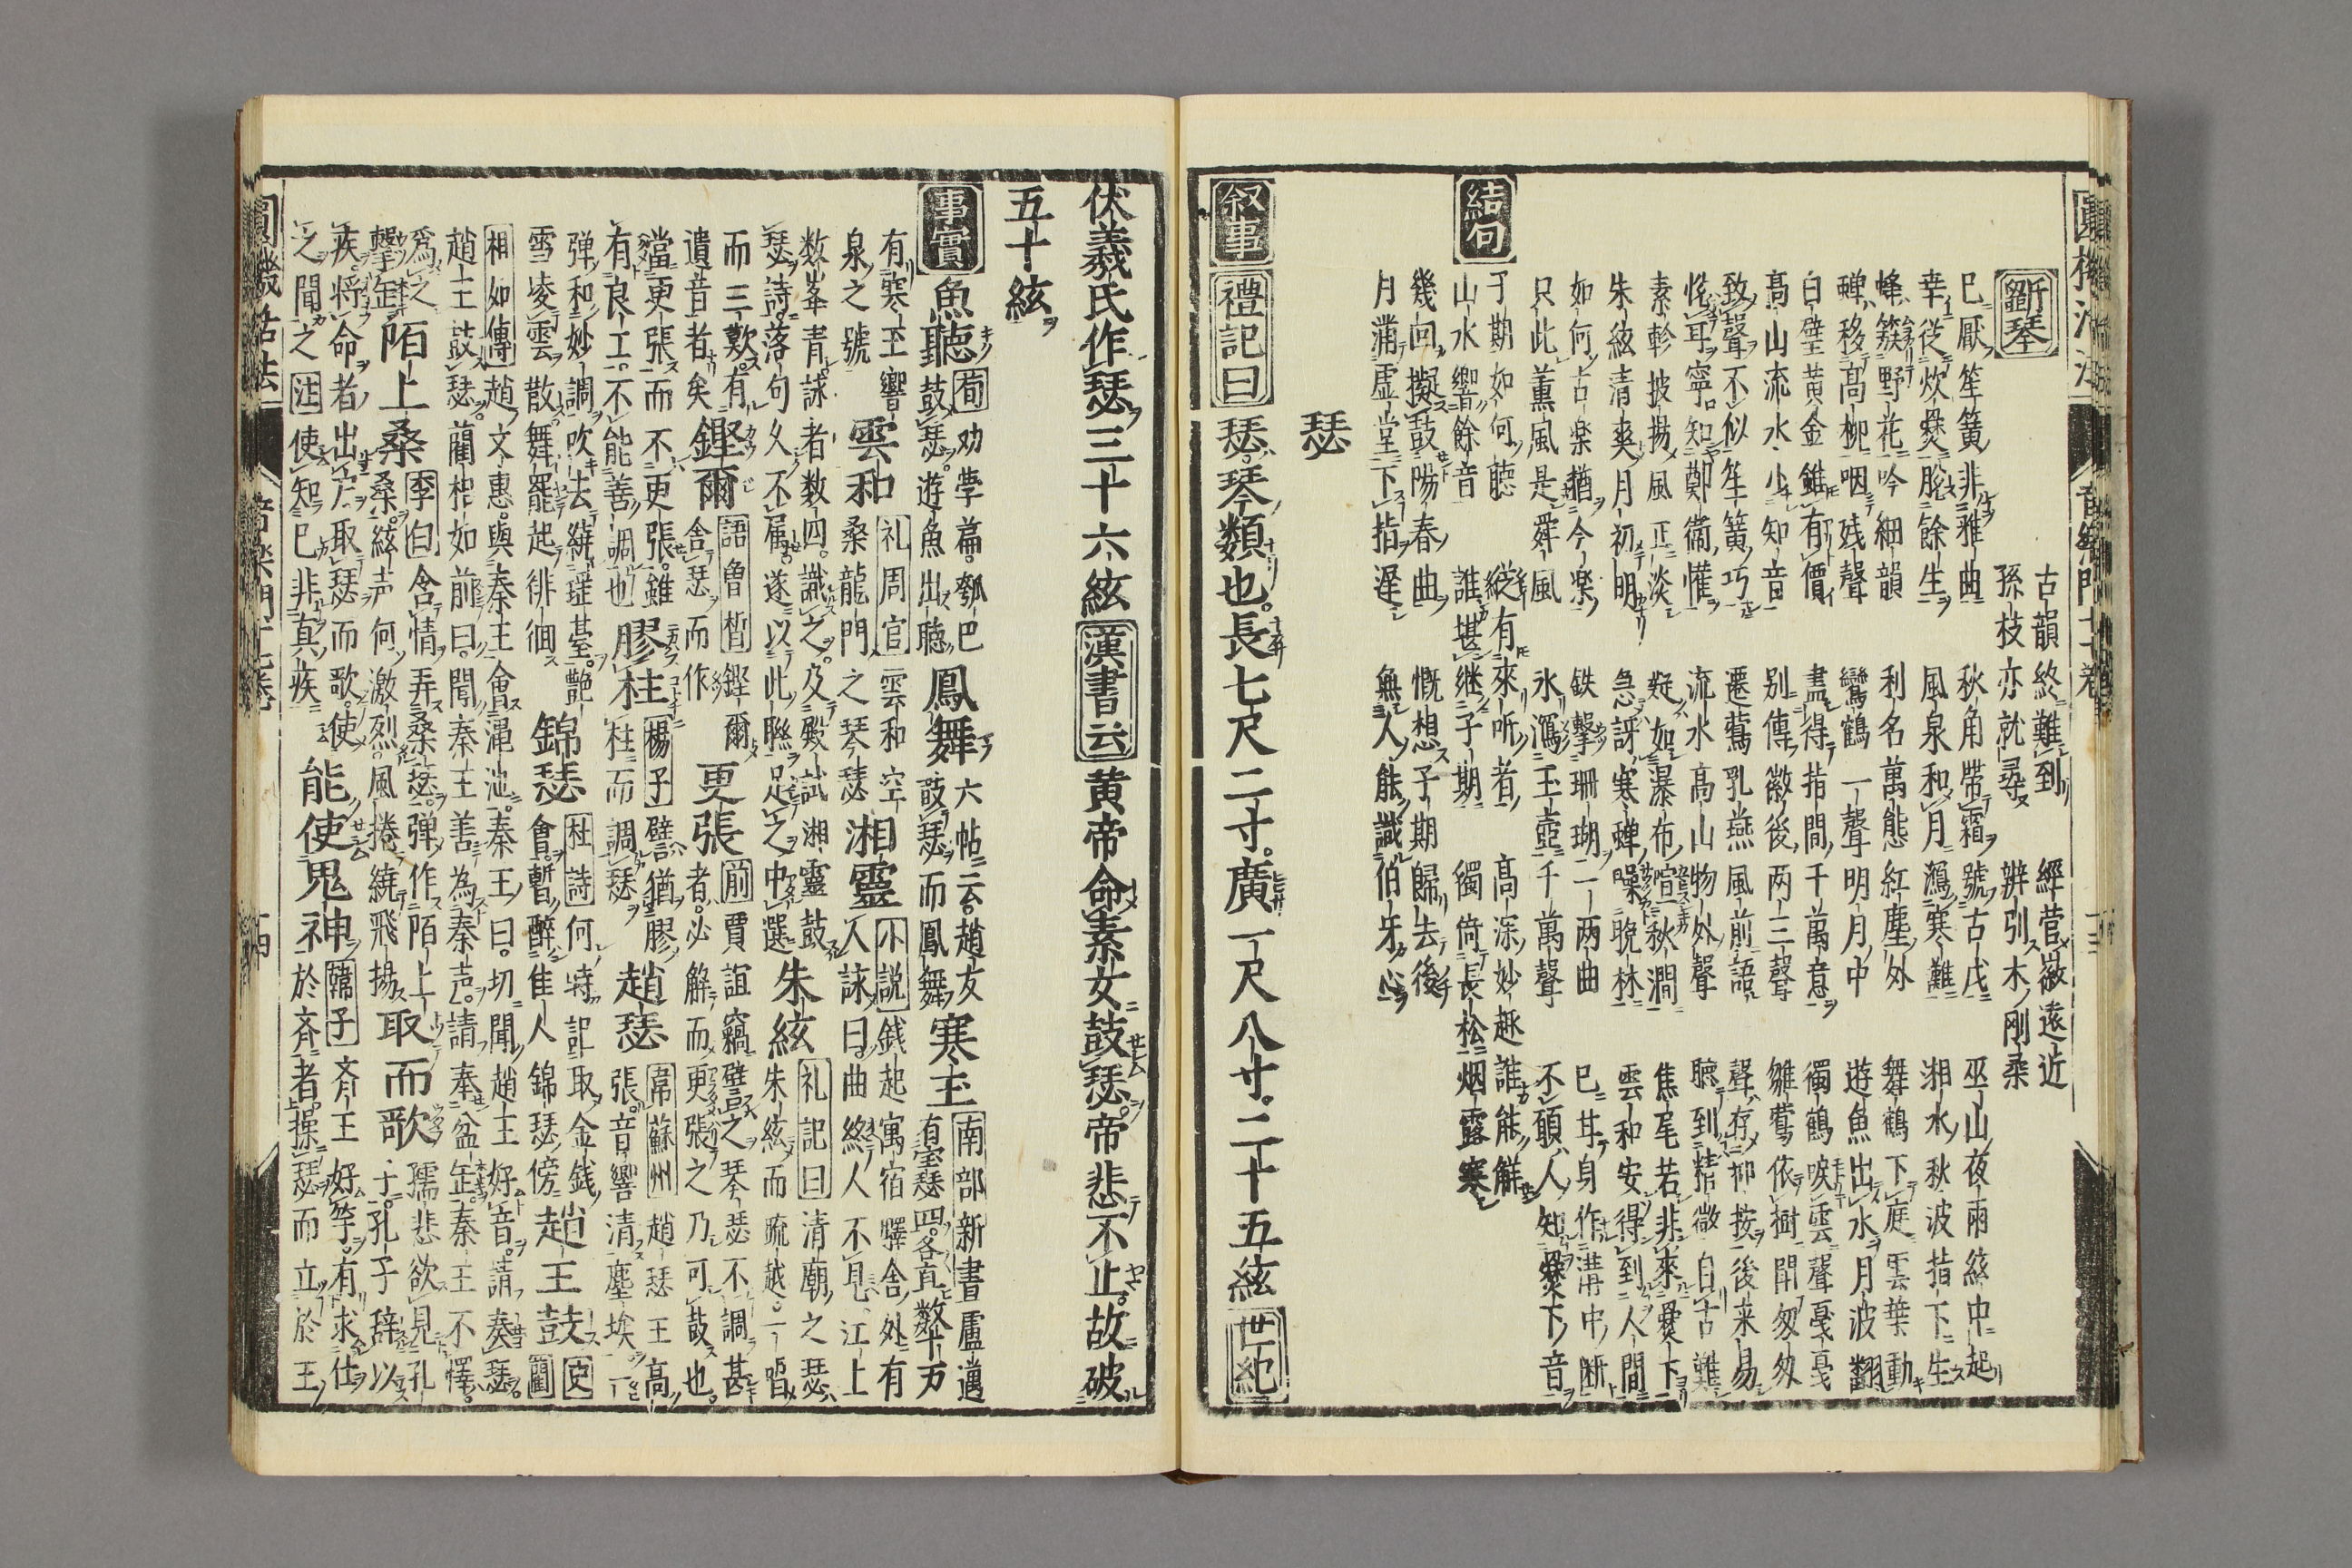 斲琴
古韻終難到
孫枝亦就尋
經营徽遠近
辨引木剛柔
巳厭笙簧非雅曲
秋角帶霜號古戍
巫山夜雨絃中起
幸從炊爨脫餘生
風泉和月瀉寒灘
湘水秋波指下生
蜂簇野花吟細韻
利名萬態紅塵外
舞鶴下庭雲葉動
蟬移高柳咽残聲
鸞鶴一聲明月中
遊魚出水月波翻
白璧黃金雖有價
盡得指間千萬意
獨鶴唳雲聲戞戞
高山流水少知音
別傳徽後两三聲
雛鶯依樹閙匆匆
致聲不似笙簧巧
遷鶯乳燕風前語
聲存抑按後来易
恠耳寧知鄭衞懽
流水高山物外聲
聽到精微自古難
素軫披揚風正淡
疑如瀑布喧秋澗
焦尾若非來爨下
朱絃清爽月初明
急訝寒蟬噪晚林
雲和安得到人間
如何古楽猶今楽
鉄擊珊瑚一两曲
巳甘身作溝中断
只此薫風是舜風
氷瀉玉壺千萬聲
不願人知爨下音
結句
子期如何聽
縱有來听者
高深妙趣誰能解
山水響餘音
誰堪継子期
獨倚長松烟露寒
幾回擬鼓陽春曲
慨想子期歸去後
月滿虛堂下指遅
無人能識伯牙心
瑟
叙事 禮記曰 瑟琴類也長七尺二寸廣一尺八寸二十五絃 世紀
伏羲氏作瑟三十六絃 漢書云 黄帝命素女鼓瑟帝悲不止故破
五十絃
事實 魚聽 荀 劝學篇瓠巴鼓瑟遊魚出聽 鳳舞 六帖云趙友鼓瑟而鳳舞 寒玉 南部新書盧邁有宝瑟四各直数十万
有寒玉響泉之號 雲和 礼周官 雲和空桑龍門之琴瑟 湘靈 小説 錢起寓宿驛舍外有人詠曰曲終人不見江上
数峯青詠者数四識之及殿試湘靈鼓瑟詩落句久不属遂以此聮足之中選 朱絃 礼記曰 清廟之瑟朱絃而疏越一唱
而三歎有遺音者矣 鏗爾 語魯晳 鏗爾舍瑟而作 更張 前 賈誼竊譬之琴瑟不調甚者必觧而更張之乃可鼓也
當更張而不更張雖有良工不能善調也 膠柱 楊子 譬猶膠柱而調瑟 趙瑟 韋蘇州 趙瑟王高張音響清塵埃一
弹和妙調吹去繞瑶䑓艶雪凌雲散舞罷起徘徊 錦瑟 杜詩 何時記取金錢會暫醉佳人錦瑟傍 趙王鼓 史藺
相如傳 趙文惠與秦王會澠池秦王曰切聞趙王好音請奏瑟趙王鼓瑟藺相如前曰聞秦王善為秦声請奉盆缶秦王不懌
為之擊缶 陌上桑 李白 含情弄桑瑟弹作陌上桑絃声何激烈風捲繞飛揚 取而歌 孺悲欲見孔子孔子辞以
疾将命者出戸取瑟而歌使之聞之 注 使知巳非真疾 能使鬼神 韓子 斉王好竽有求仕於斉者操瑟而立於王